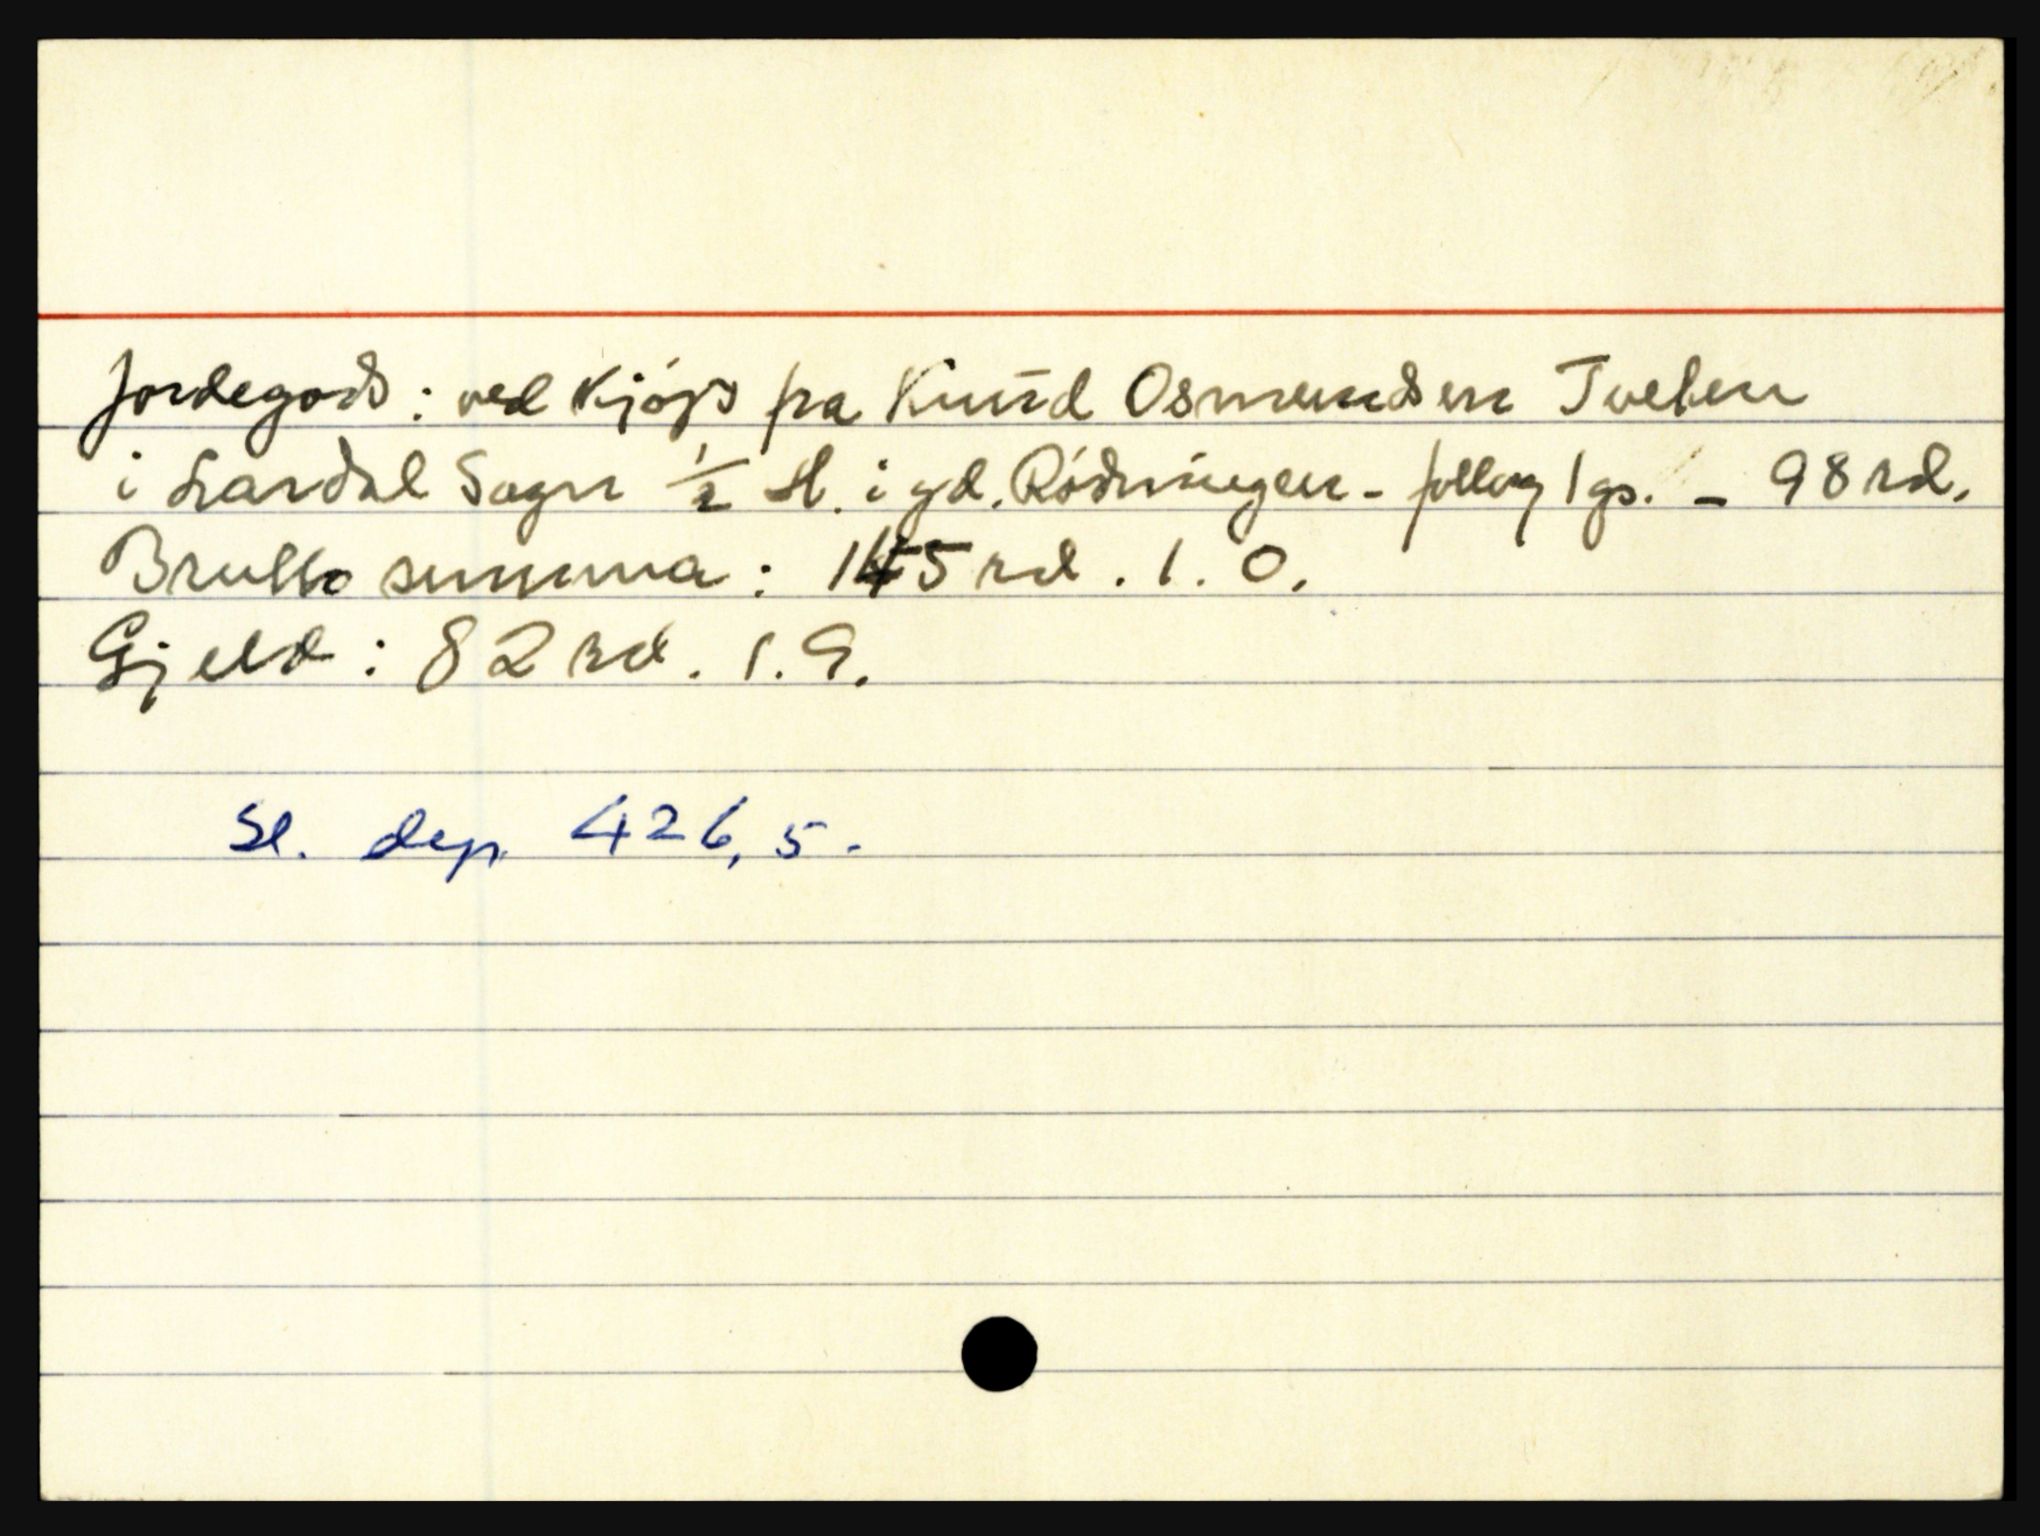 Jordegods: ved Kjøps fra Knud Osmundsen Tveten
i Lardal Sogn ½ hl. i gd. Rødningen - 1 gs. - 98 rd.
Brutto summa: 145 rd. 1. 0.
Gjeld: 82 rd. 1. 9.
Sl. dep 426, 5.